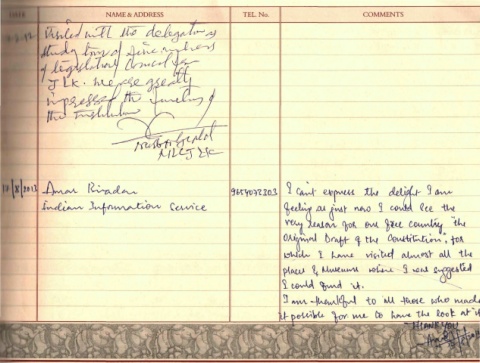 DATE NAME & ADDRESS TEL. No. COMMENTS
Visited with the delegation as
study tour of nine members
of Legislative Council of
J&K. We are greatly
impressed the functioning of
the institution
MLC J&K
12/8/2013 Aman 9654072303 I can't express the delight I am
Indian Information Service feeling as just now I could see the
very reason for our free country "the
original Draft of the Constitution", for
which I have visited almost all the
places & Museums where I was suggested
I could find it.
I am thankful to all those who made
it possible for me to have the look at it
THANK YOU